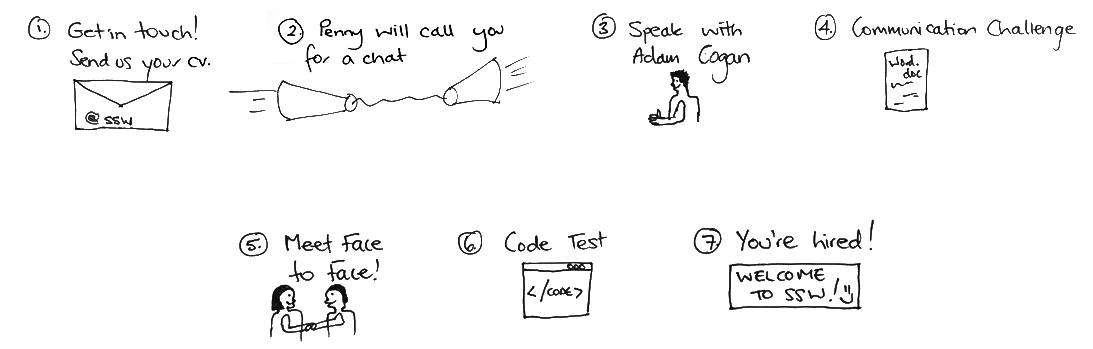 1. Get in touch!
Send us your cv.
@ SSW
2 Penny will call you
for a chat
3 Speak with
Adam Cogan
4. Communication Challenge
Word.
doc
5. Meet Face
to Face!
6. Code Test
</code>
7. You're hired!
WELCOME
TO SSW! :)